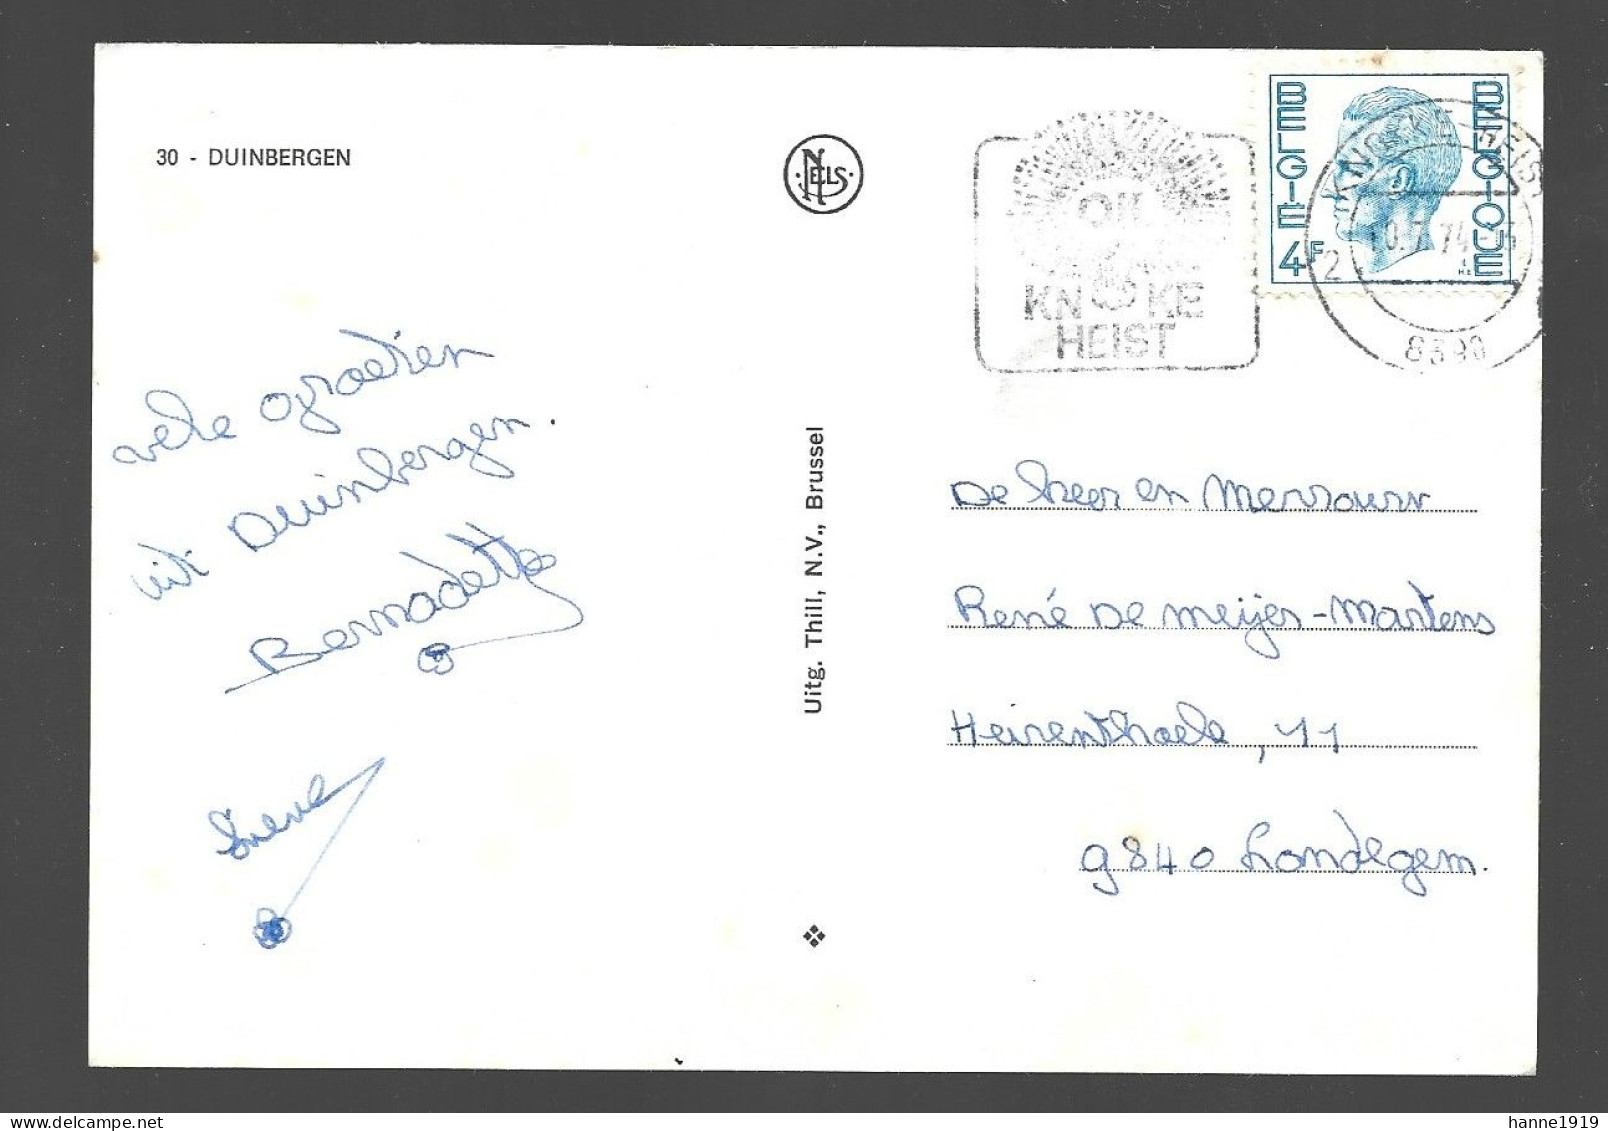 30 - DUINBERGEN
NELS
OIL
KNOKKE
HEIST
BELGIE
BELGIQUE
4F
KNOKKE-HEIST
2
10.7.74
8390
vele groetjen
uit Duinbergen.
Bernadette
Lieve
Uitg. Thill, N.V., Brussel
De heer en Mevrouw
René De Meijer-Martens
Heirenthoek, 11
9840 Landegem.
hanne1919